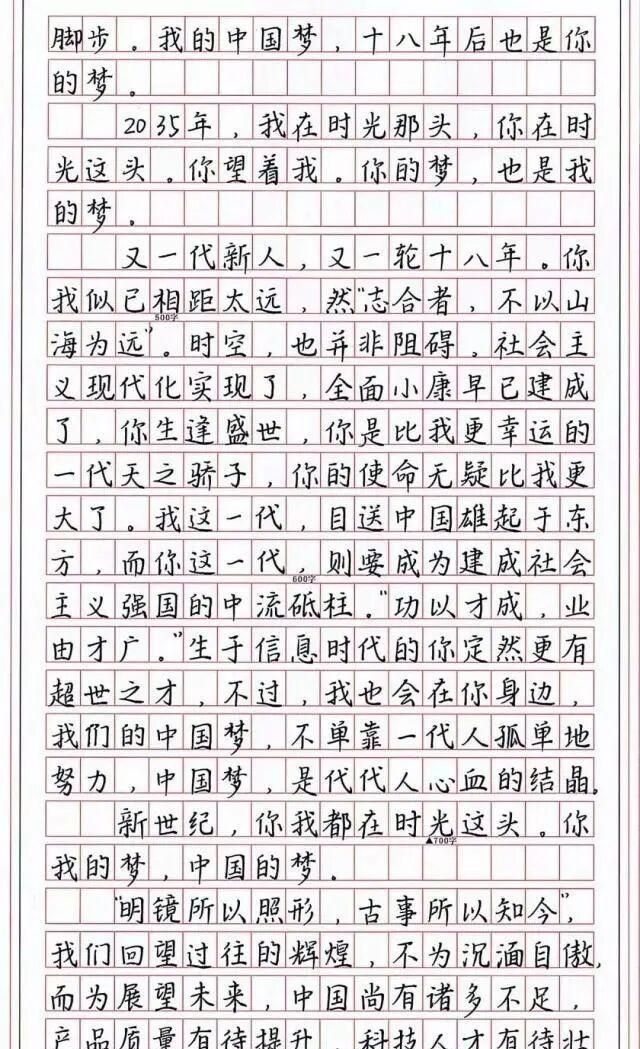 脚步。我的中国梦，十八年后也是你
的梦。
2035年，我在时光那头，你在时
光这头。你望着我。你的梦，也是我
的梦。
又一代新人，又一轮十八年。你
我似已相距太远，然“志合者，不以山
500字
海为远”。时空，也并非阻碍。社会主
义现代化实现了，全面小康早已建成
了，你生逢盛世，你是比我更幸运的
一代天之骄子，你的使命无疑比我更
大了。我这一代，目送中国雄起于东
方，而你这一代，则要成为建成社会
600字
主义强国的中流砥柱。“功以才成，业
由才广。”生于信息时代的你定然更有
超世之才，不过，我也会在你身边，
我们的中国梦，不单靠一代人孤单地
努力，中国梦，是代代人心血的结晶。
新世纪，你我都在时光这头。你
▲700字
我的梦，中国的梦。
“明镜所以照形，古事所以知今”，
我们回望过往的辉煌，不为沉湎自傲，
而为展望未来，中国尚有诸多不足，
产品质量有待提升，科技人才有待壮